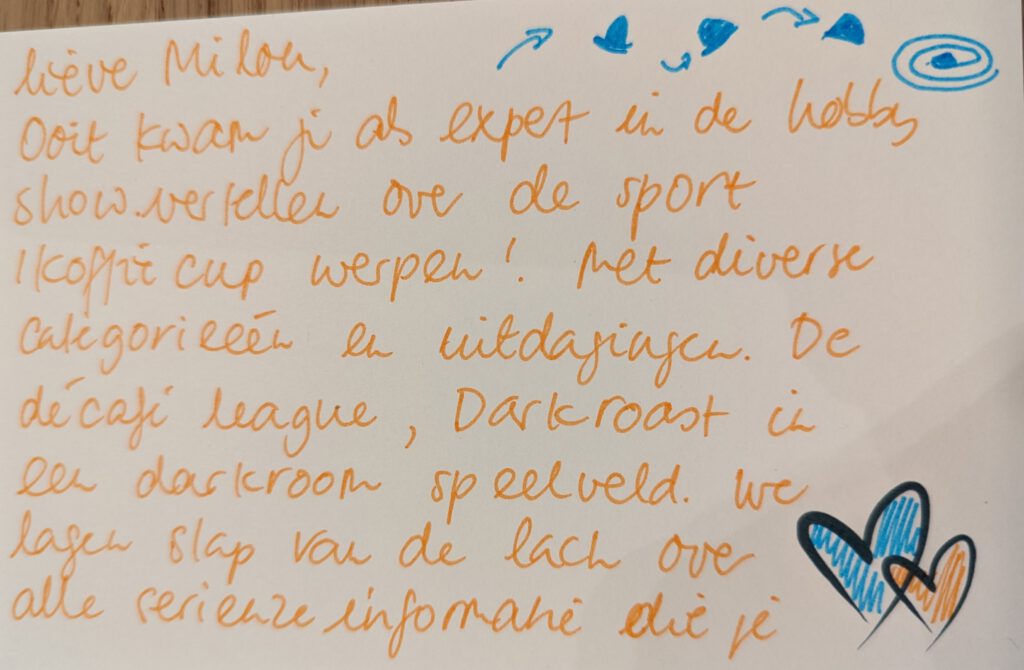 lieve Milou,
Ooit kwam ji als expert in de hobby
show vertellen over de sport
koffie cup werpen! Met diverse
categorieeën en uitdagingen. De
décafi league, Darkroast in
een darkroom speelveld. We
lagen slap van de lach over
alle serieuze informatie die je